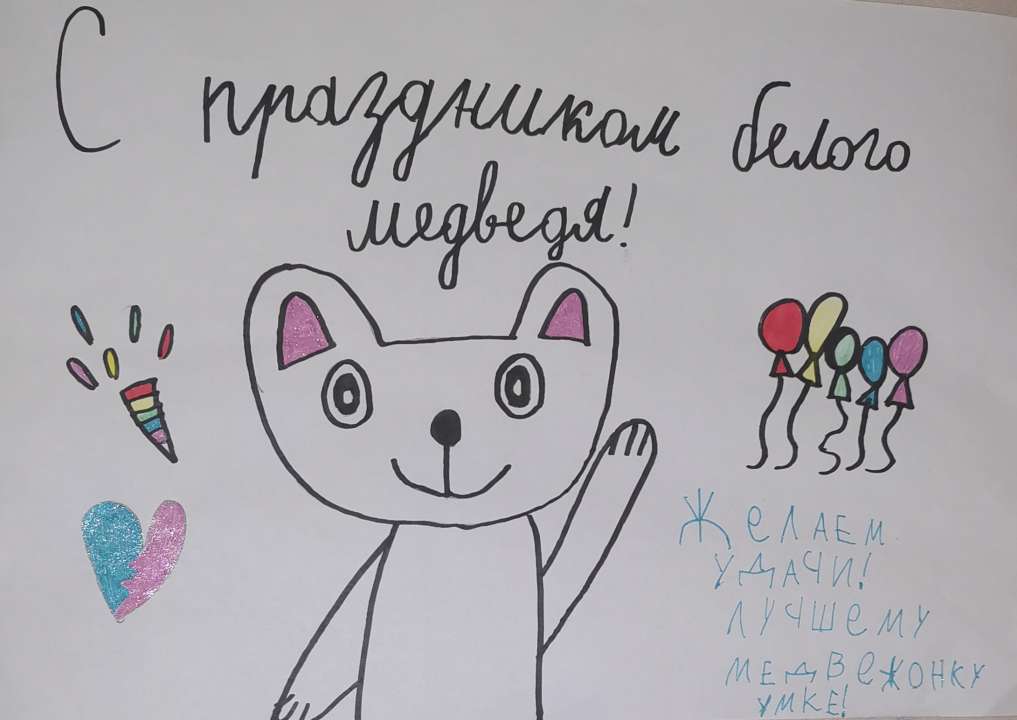 С праздником белого
медведя!
ЖЕЛАЕМ
УДАЧИ!
ЛУЧШЕМУ
МЕДВЕЖОНКУ
УМКЕ!